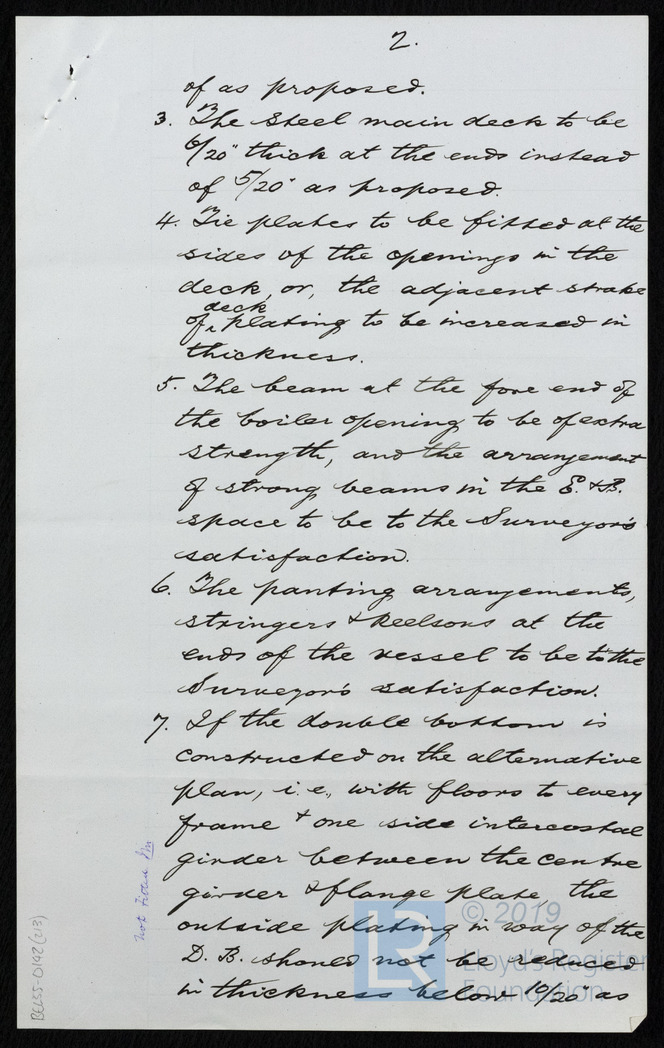 2.
of as proposed.
3. The steel main deck to be
6/20" thick at the ends instead
of 5/20" as proposed.
4. Tie plates to be fitted at the
sides of the openings in the
deck, or, the adjacent strake
of deck plating to be increased in
thickness.
5. The beam at the fore end of
the boiler opening to be of extra
strength, and the arrangement
of strong beams in the E. & B.
space to be to the Surveyor's
satisfaction.
6. The panting arrangements,
stringers & keelsons at the
ends of the vessel to be to the
Surveyor's satisfaction.
7. If the double bottom is
constructed on the alternative
plan, i.e., with floors to every
frame & one side intercostal
girder between the centre
girder & flange plate, the
outside plating in way of the
D. B. should not be reduced
in thickness below 10/20" as
not
BEL55-0142 (2/3)
© 2019
Lloyd's Register
Foundation
LR